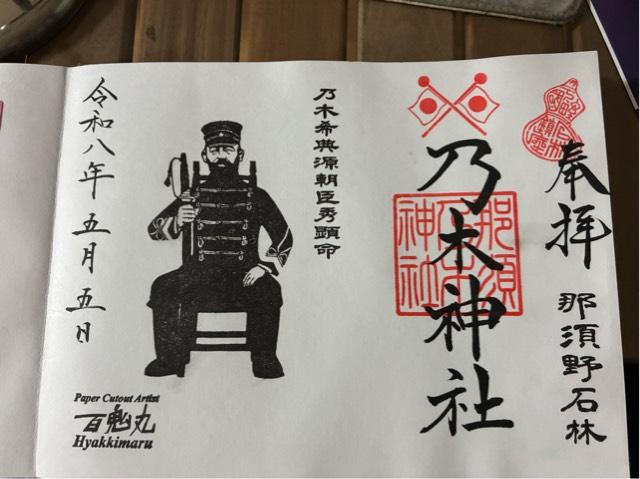 奉拝
那須野石林
乃木神社
那須
乃木
神社
乃木希典源朝臣秀顕命
令和八年 五月 五日
Paper Cutout Artist
百鬼丸
Hyakkimaru